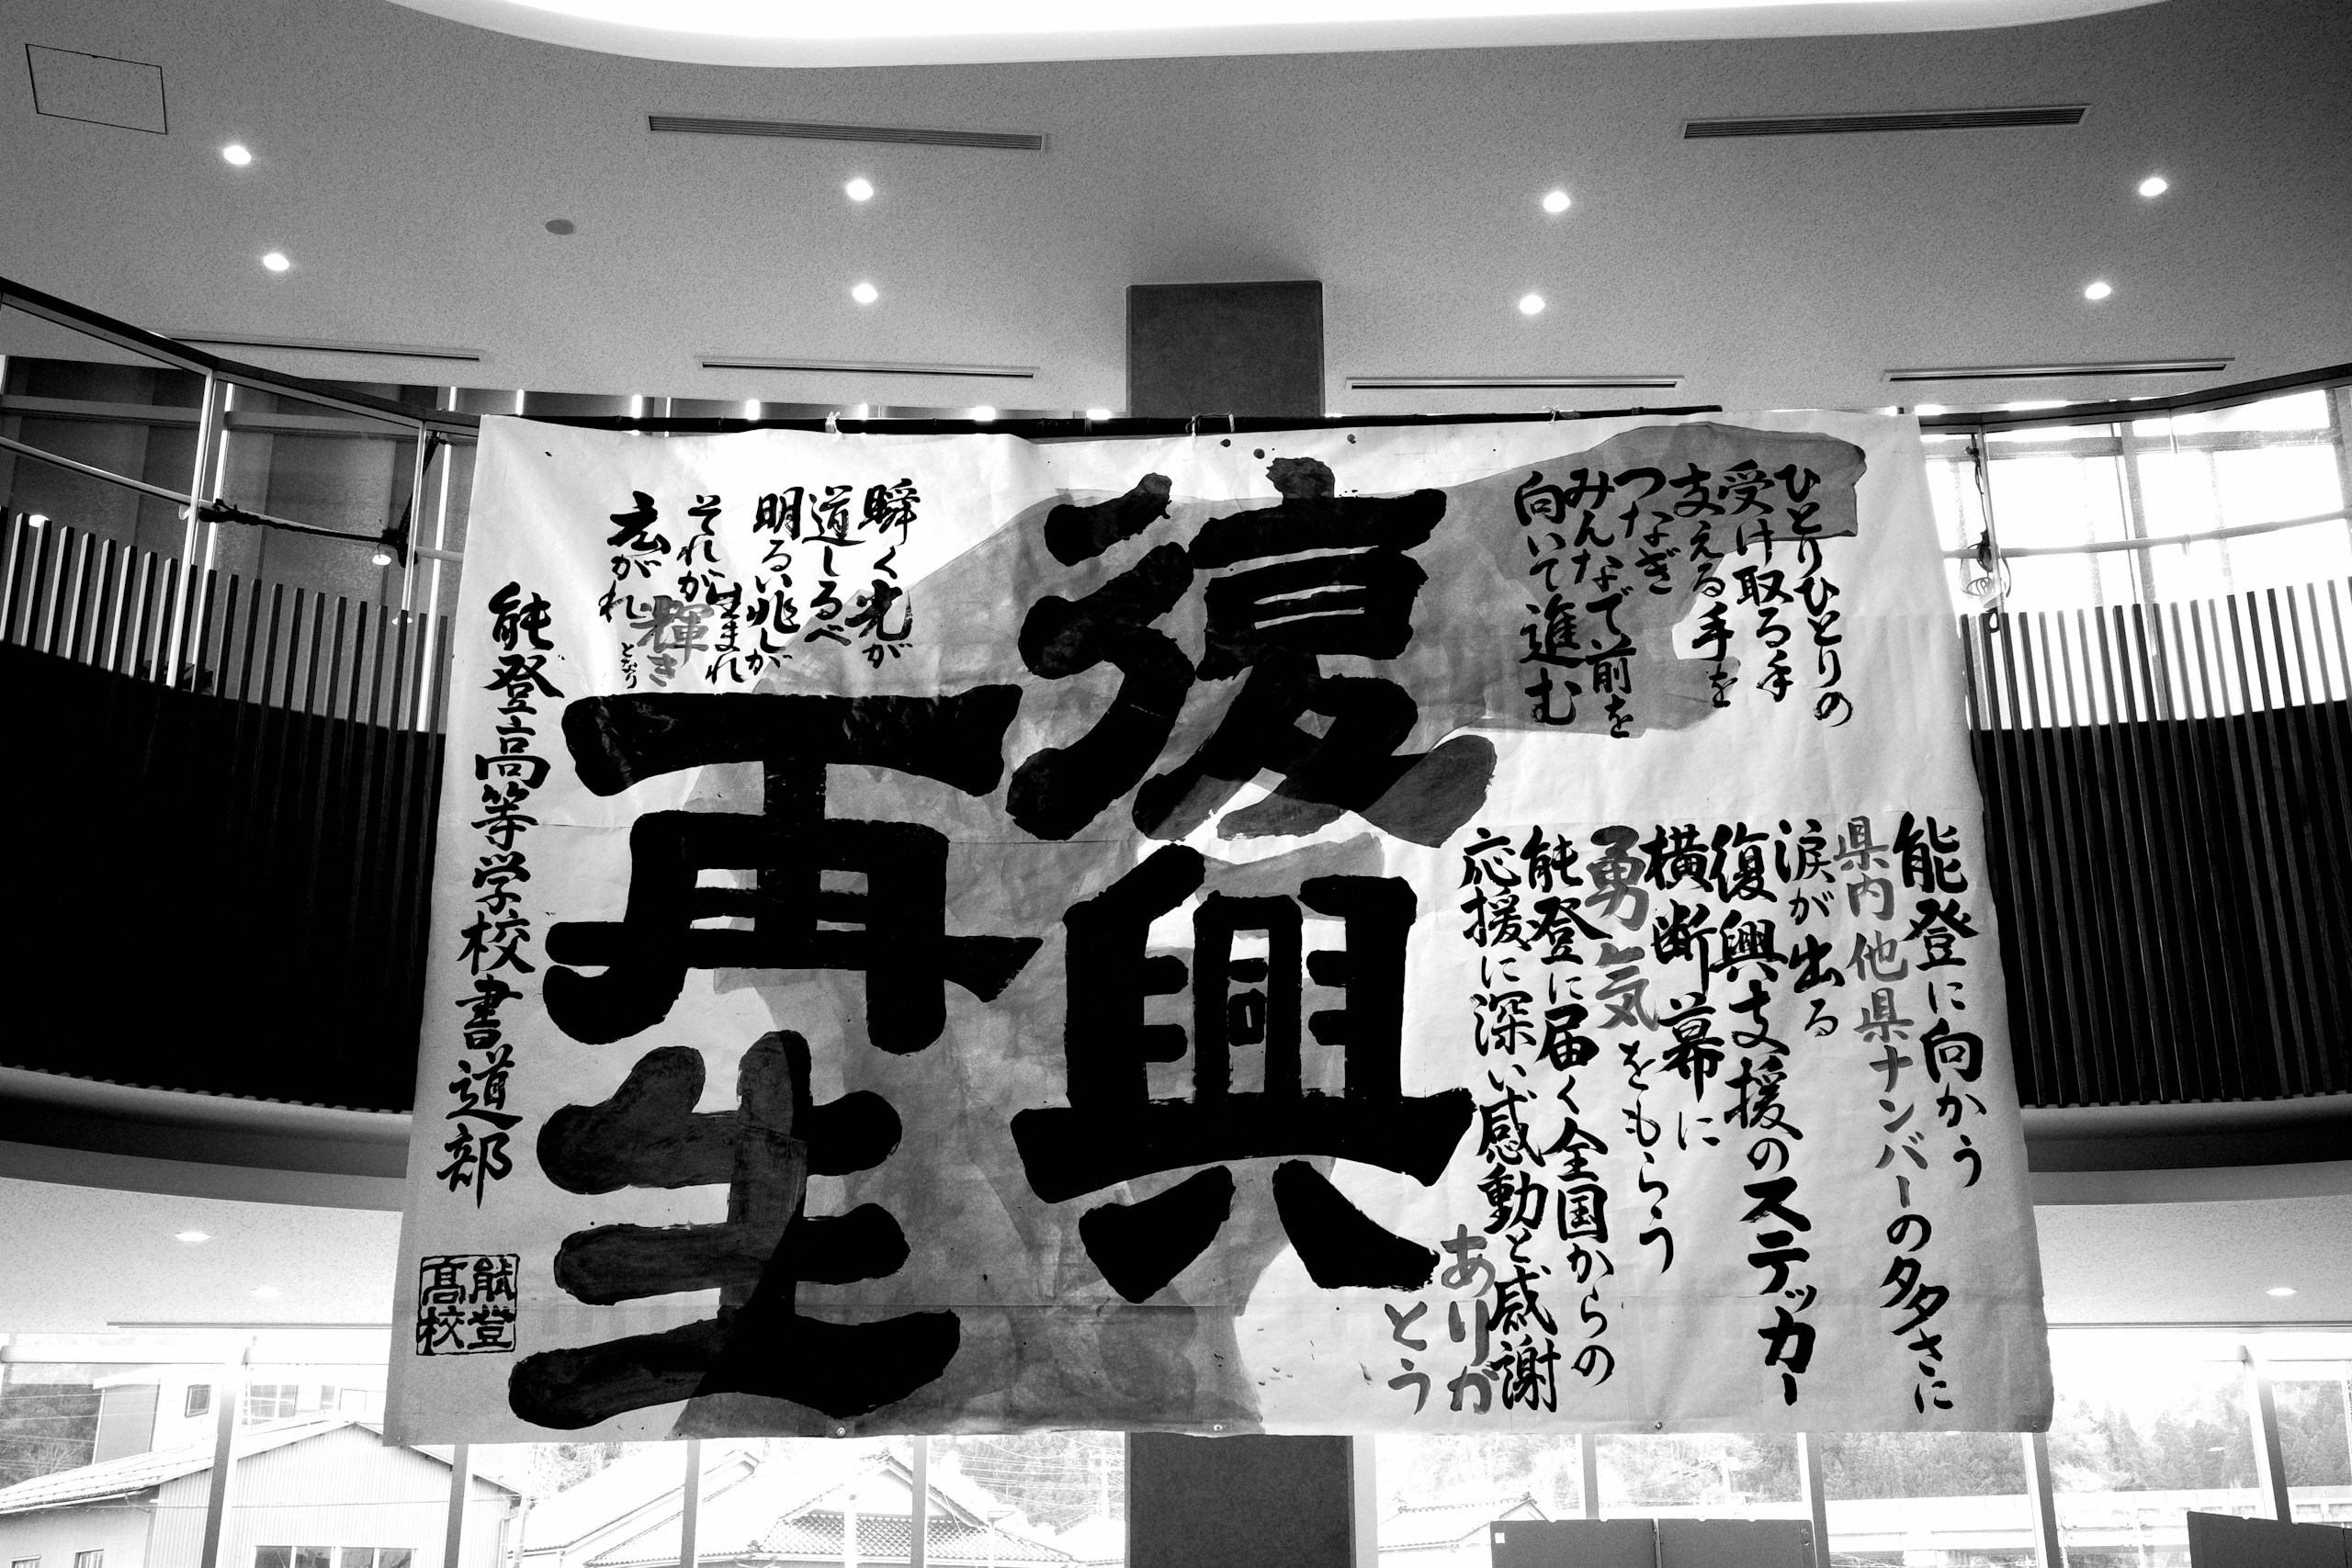 ひとりひとりの
受け取る手
支える手を
つなぎ
みんなで前を
向いて進む
能登に向かう
県内他県ナンバーの多さに
涙が出る
復興支援のステッカー
横断幕に
勇気をもらう
能登に届く全国からの
応援に深い感動と感謝
ありが
とう
復興
再生
瞬く光が
道しるべ
明るい兆しが
生まれ
それが輝きとなり
広がれ
能登高等学校書道部
能登
高校